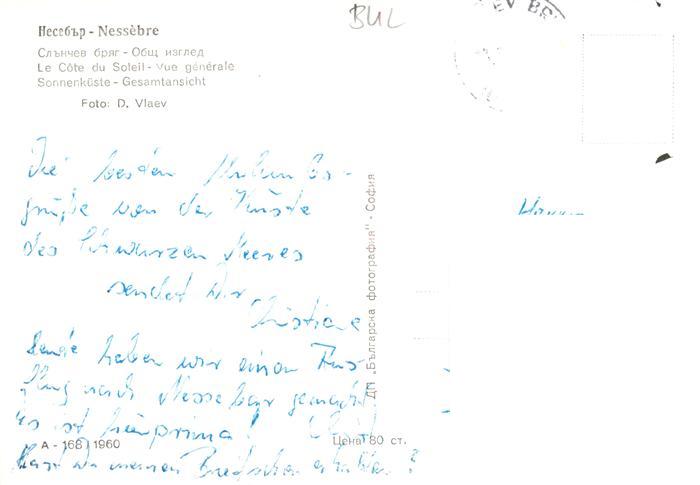 BUL
Несебър - Nessèbre
Слънчев бряг - Общ изглед
Le Côte du Soleil - Vue générale
Sonnenküste - Gesamtansicht
Foto: D. Vlaev
Die besten Urlaubs-
grüße von der Küste
des Schwarzen Meeres
sendet Dir
Christiane
Heute haben wir einen Aus-
flug nach Nessebar gemacht
es ist hier prima!
Hast Du meinen Brief schon erhalten?
A - 168 1960
Цена 80 ст.
ДП „Българска фотография" - София